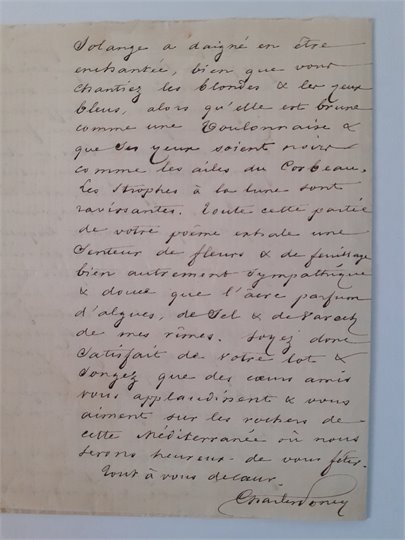 Solange a daigné en être
enchantée, bien que vous
chantiez les blondes & les yeux
bleus, alors qu'elle est brune
comme une Toulonnaise &
que ses yeux soient noirs
comme les ailes du Corbeau.
Les strophes à la lune sont
ravissantes. Toute cette partie
de votre poème exhale une
senteur de fleurs & de feuillage
bien autrement sympathique
& douce que l'âcre parfum
d'algues, de sel & de varech
de mes rimes. Soyez donc
satisfait de votre lot &
songez que des cœurs amis
vous applaudissent & vous
aiment sur les rochers de
cette Méditerranée où nous
serons heureux de vous fêter.
Tout à vous de cœur.
Charles Poncy